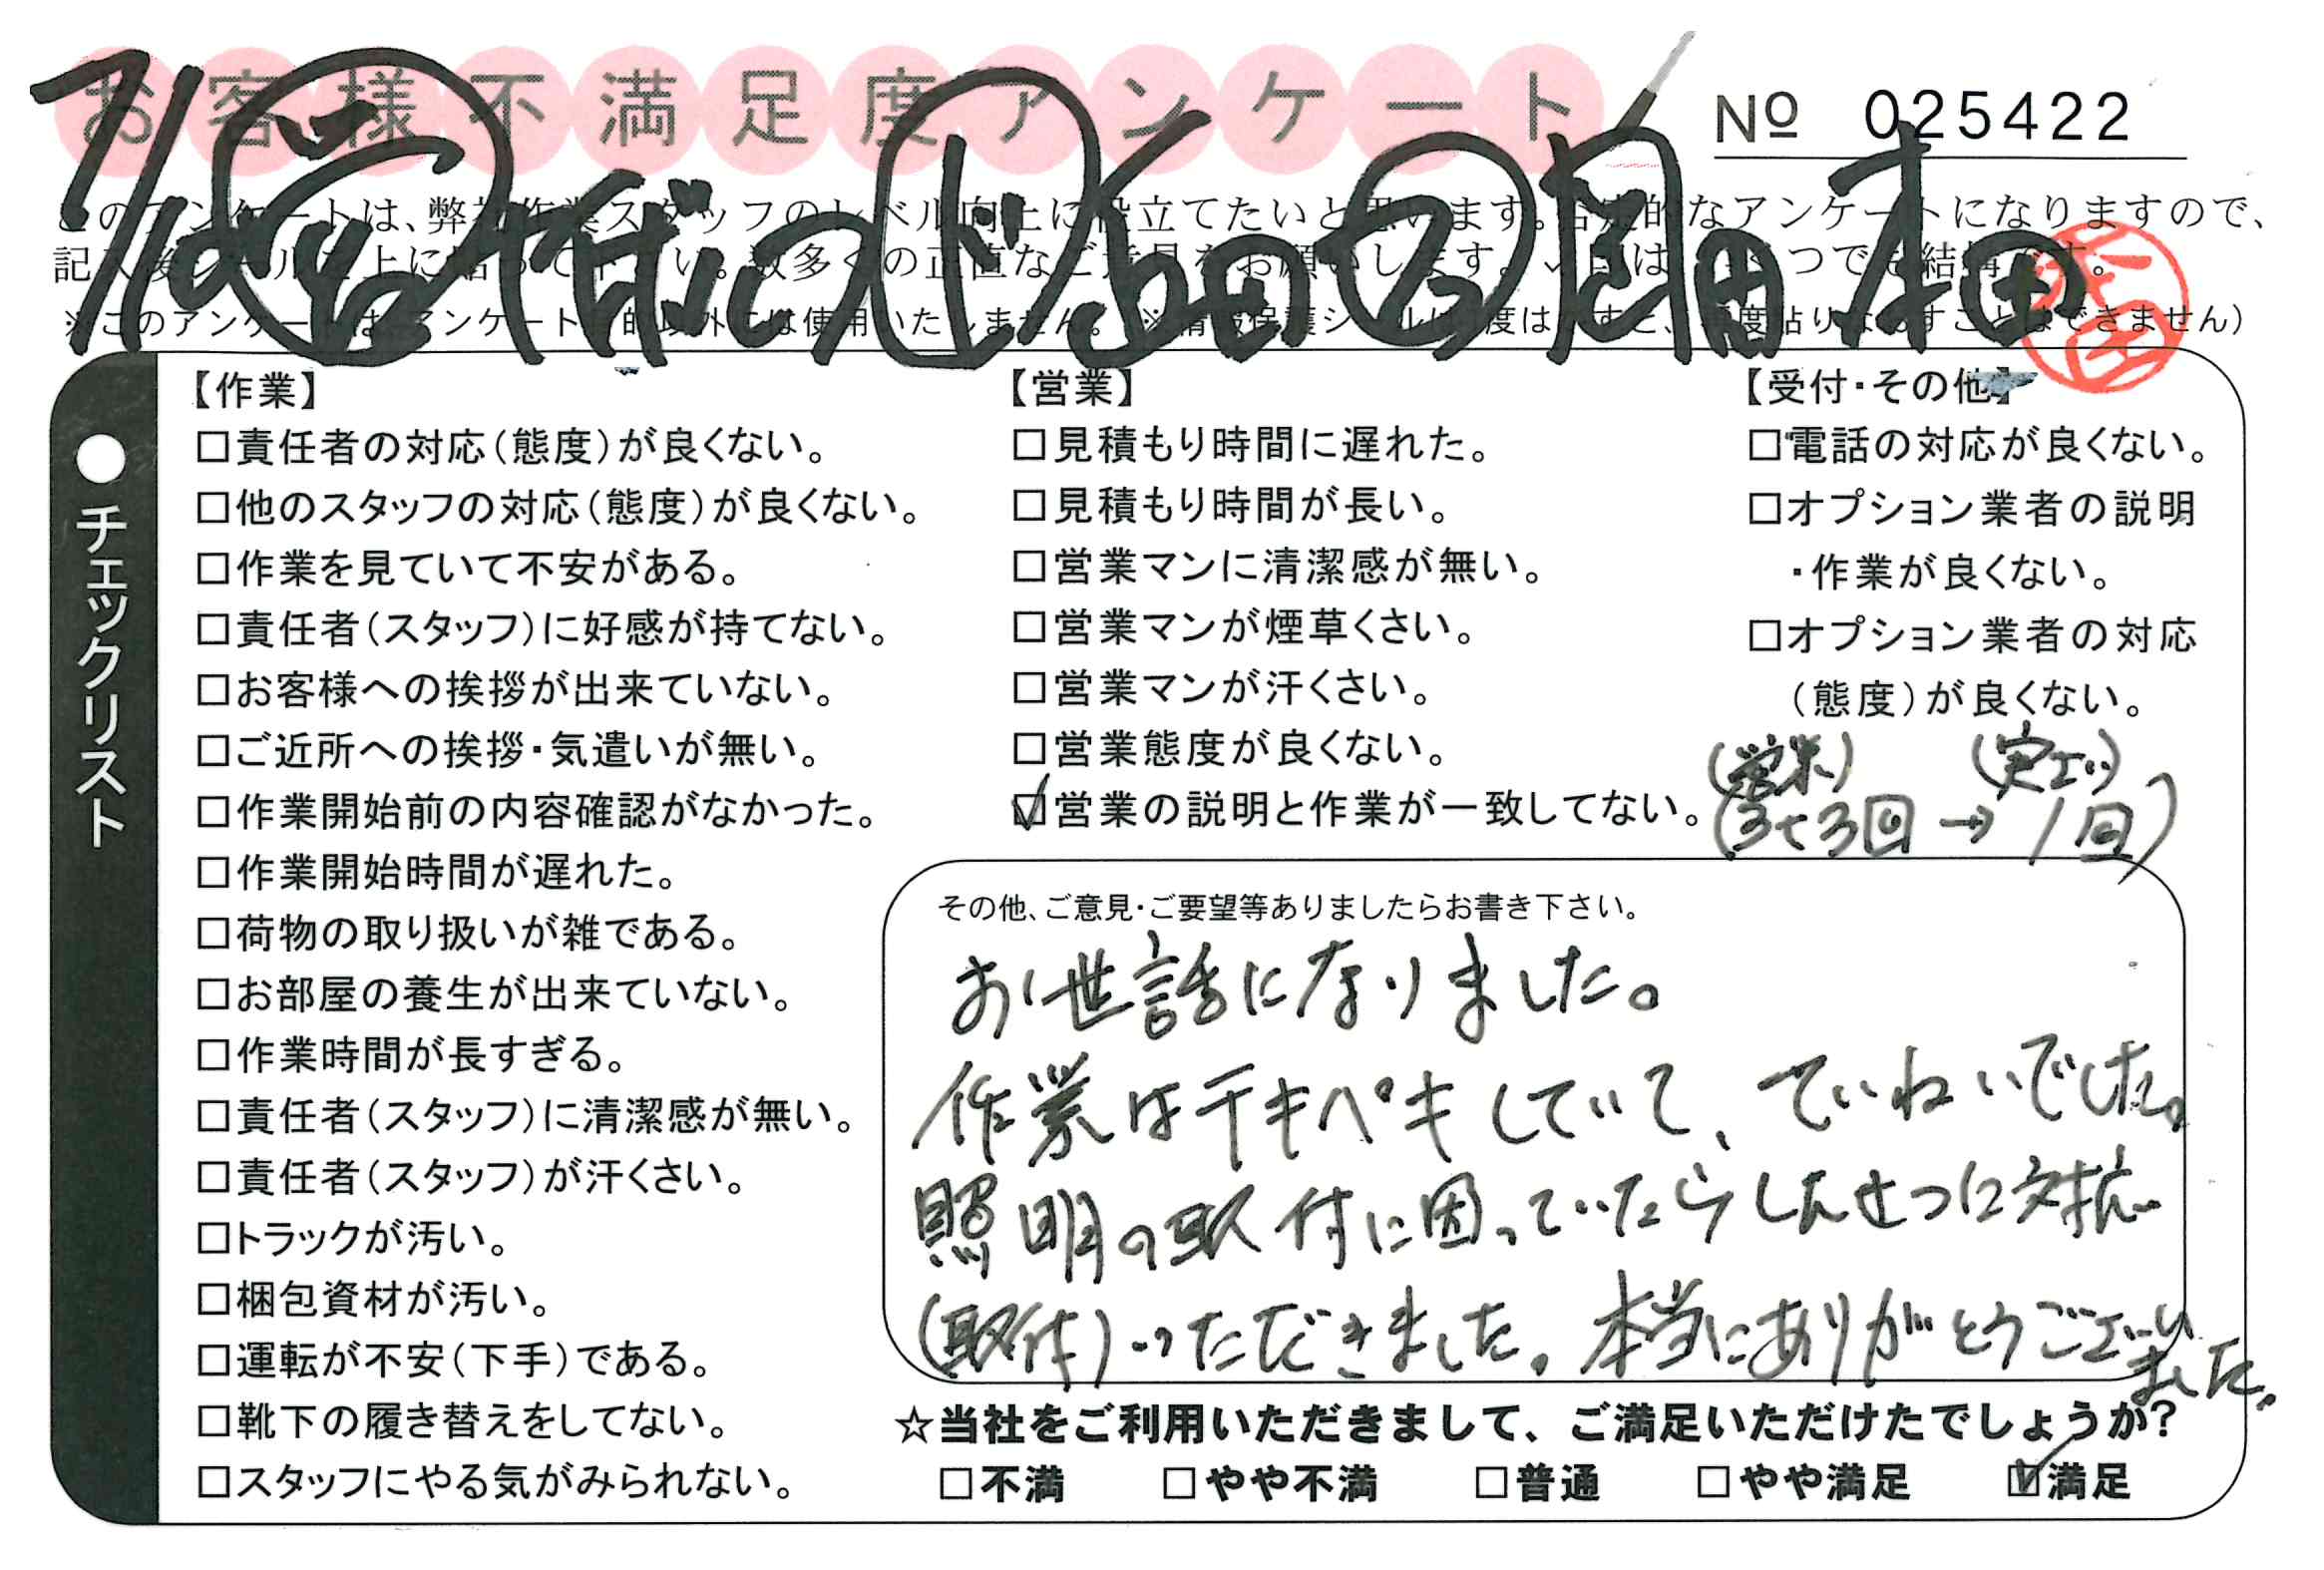 お客様不満足度アンケート
No 025422
このアンケートは、弊社作業スタッフのレベル向上に役立てたいと思います。否定的なアンケートになりますので、
記入後シールを上に貼って下さい。数多くの正直なご意見をお願いします。
※このアンケートは、アンケート目的以外には使用いたしません。
7/1
本田
●チェックリスト
【作業】
□責任者の対応(態度)が良くない。
□他のスタッフの対応(態度)が良くない。
□作業を見ていて不安がある。
□責任者(スタッフ)に好感が持てない。
□お客様への挨拶が出来ていない。
□ご近所への挨拶・気遣いが無い。
□作業開始前の内容確認がなかった。
□作業開始時間が遅れた。
□荷物の取り扱いが雑である。
□お部屋の養生が出来ていない。
□作業時間が長すぎる。
□責任者(スタッフ)に清潔感が無い。
□責任者(スタッフ)が汗くさい。
□トラックが汚い。
□梱包資材が汚い。
□運転が不安(下手)である。
□靴下の履き替えをしてない。
□スタッフにやる気がみられない。
【営業】
□見積もり時間に遅れた。
□見積もり時間が長い。
□営業マンに清潔感が無い。
□営業マンが煙草くさい。
□営業マンが汗くさい。
□営業態度が良くない。
☑営業の説明と作業が一致してない。
(営業)
3t3回 → 1回)
【受付・その他】
□電話の対応が良くない。
□オプション業者の説明
・作業が良くない。
□オプション業者の対応
(態度)が良くない。
その他、ご意見・ご要望等ありましたらお書き下さい。
お世話になりました。
作業はテキパキしていて、ていねいでした。
照明の取付に困っていたらしんせつに対応
(取付)いただきました。本当にありがとうござい
ました。
☆当社をご利用いただきまして、ご満足いただけたでしょうか?
□不満 □やや不満 □普通 □やや満足 ☑満足